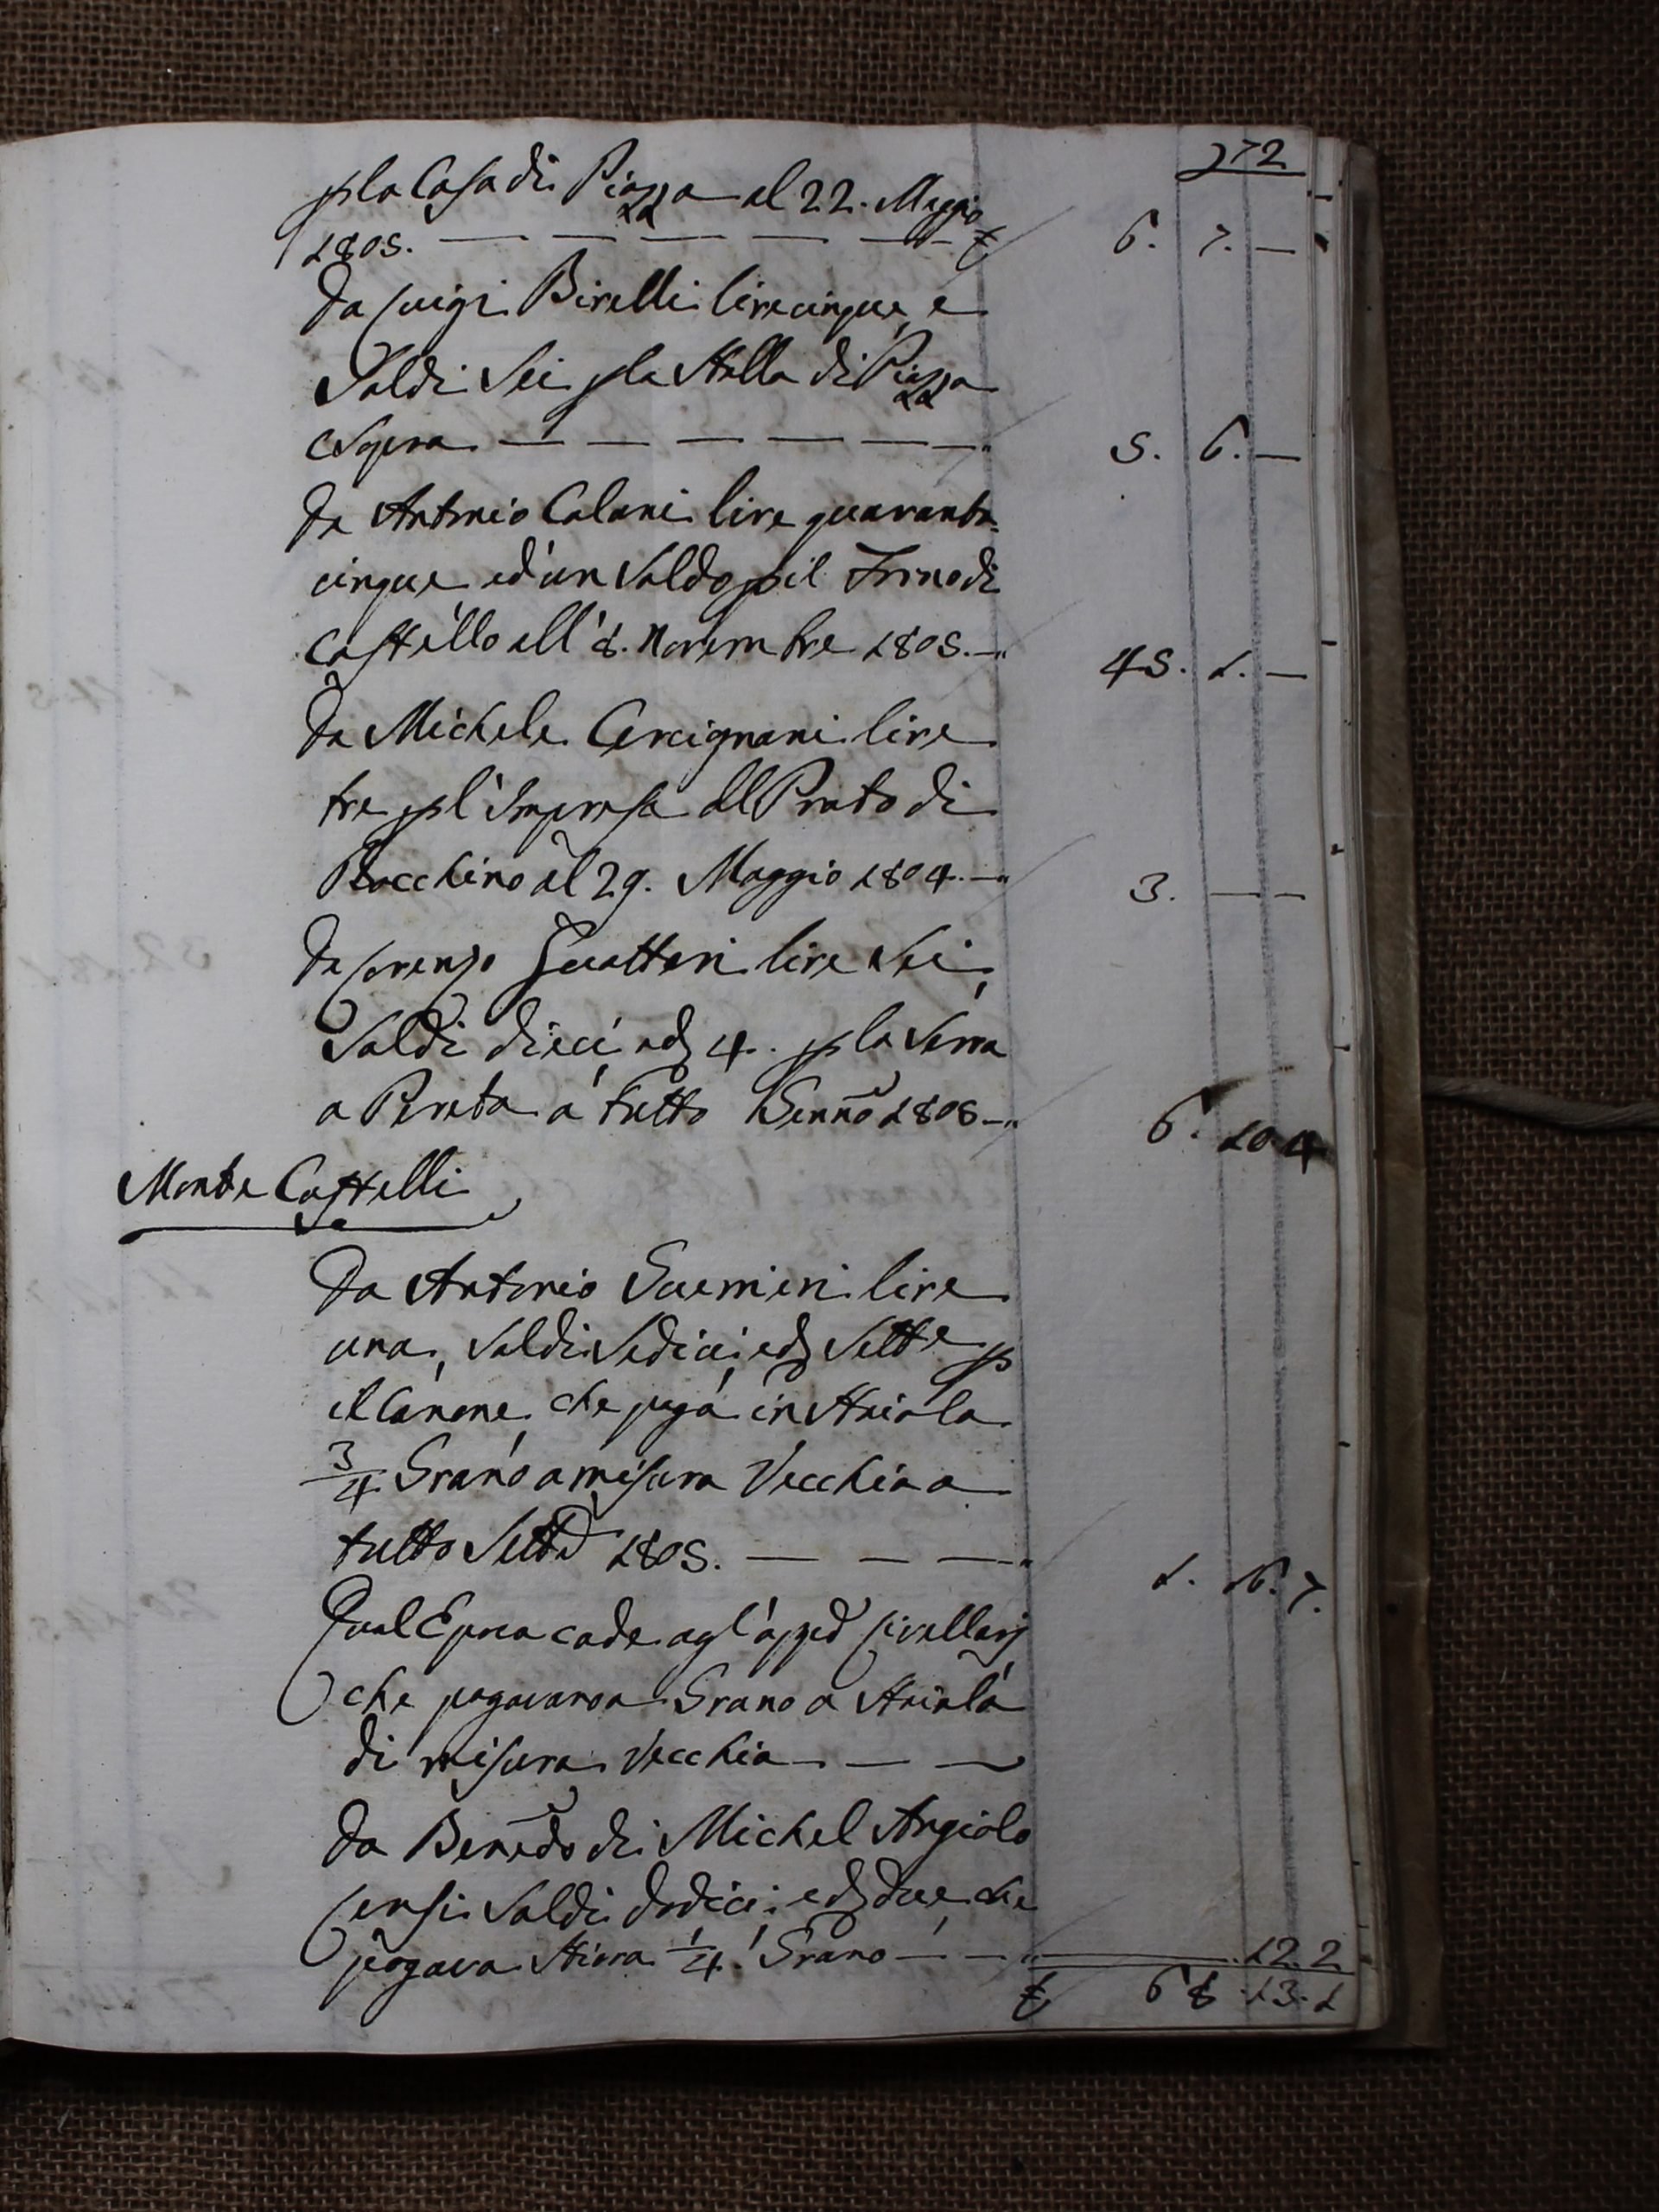 272
p la Casa di Piazza al 22. Maggio
1805. — — — — — — £ 6. 7. —
Da Luigi Birelli lire cinque, e
Soldi Sei p la Stalla di Piazza
e Sopra — — — — — — " 5. 6. —
Da Antonio Calani lire quaranta-
cinque ed un Soldo p il Forno di
Castello all' 8. Novembre 1805. — " 45. 1. —
Da Michele Cercignani lire
tre p l'Impresa del Prato di
Rocchino al 29. Maggio 1804. — " 3. — —
Da Lorenzo Guatteri lire Sei,
Soldi dieci, e d 4. p la Serra
a Pereta a tutto Genno 1806 — " 6. 10. 4
Monte Castelli
Da Antonio Guerrieri lire
una, Soldi Sedici, e d Sette p
il Canone, che paga in Staiola
3/4 Grano a misura Vecchia a
tutto Sette 1805. — — — " 1. 16. 7.
Qual Epoca cade agl' apped Livellarj
che pagavano a Grano a Staiola
di misura Vecchia — — —
Da Benedo di Michel Angiolo
Censi Soldi dodici, e d due che
pagava Staiora 1/4 Grano — — " — 12. 2
£ 68. 13. 1